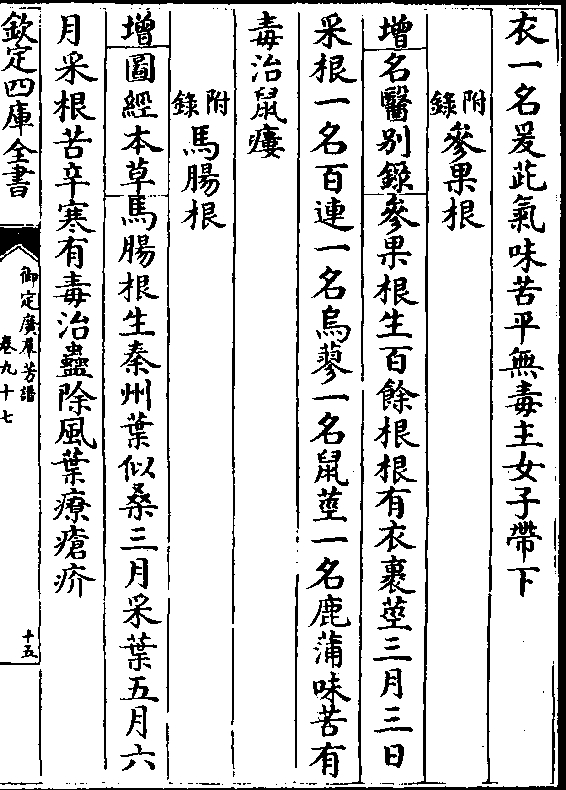 衣一名爰茈氣味苦平無毒主女子帶下
附錄參果根
增名醫别錄參果根生百餘根根有衣裹莖三月三日
采根一名百連一名烏蓼一名鼠莖一名鹿蒲味苦有
毒治鼠瘻
附錄馬腸根
增圖經本草馬腸根生秦州葉似桑三月采葉五月六
月采根苦辛寒有毒治蠱除風葉療瘡疥
欽定四庫全書
御定廣羣芳譜
卷九十七
十五